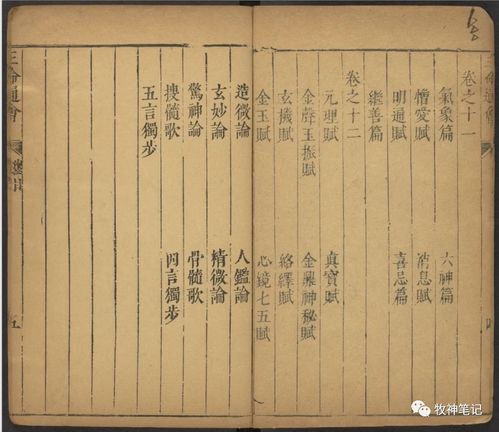 卷之十一
氣象篇 六神篇
憎愛賦 消息賦
明通賦 喜忌篇
繼善篇
卷之十二
元理賦 真寶賦
金聲玉振賦 金鼎神秘賦
玄機賦 絡繹賦
金玉賦 心鏡七五賦
造微論 人鑑論
玄妙論 精微論
驚神論 骨髓歌
搜髓歌 四言獨步
五言獨步
三命通會
五
牧神笔记